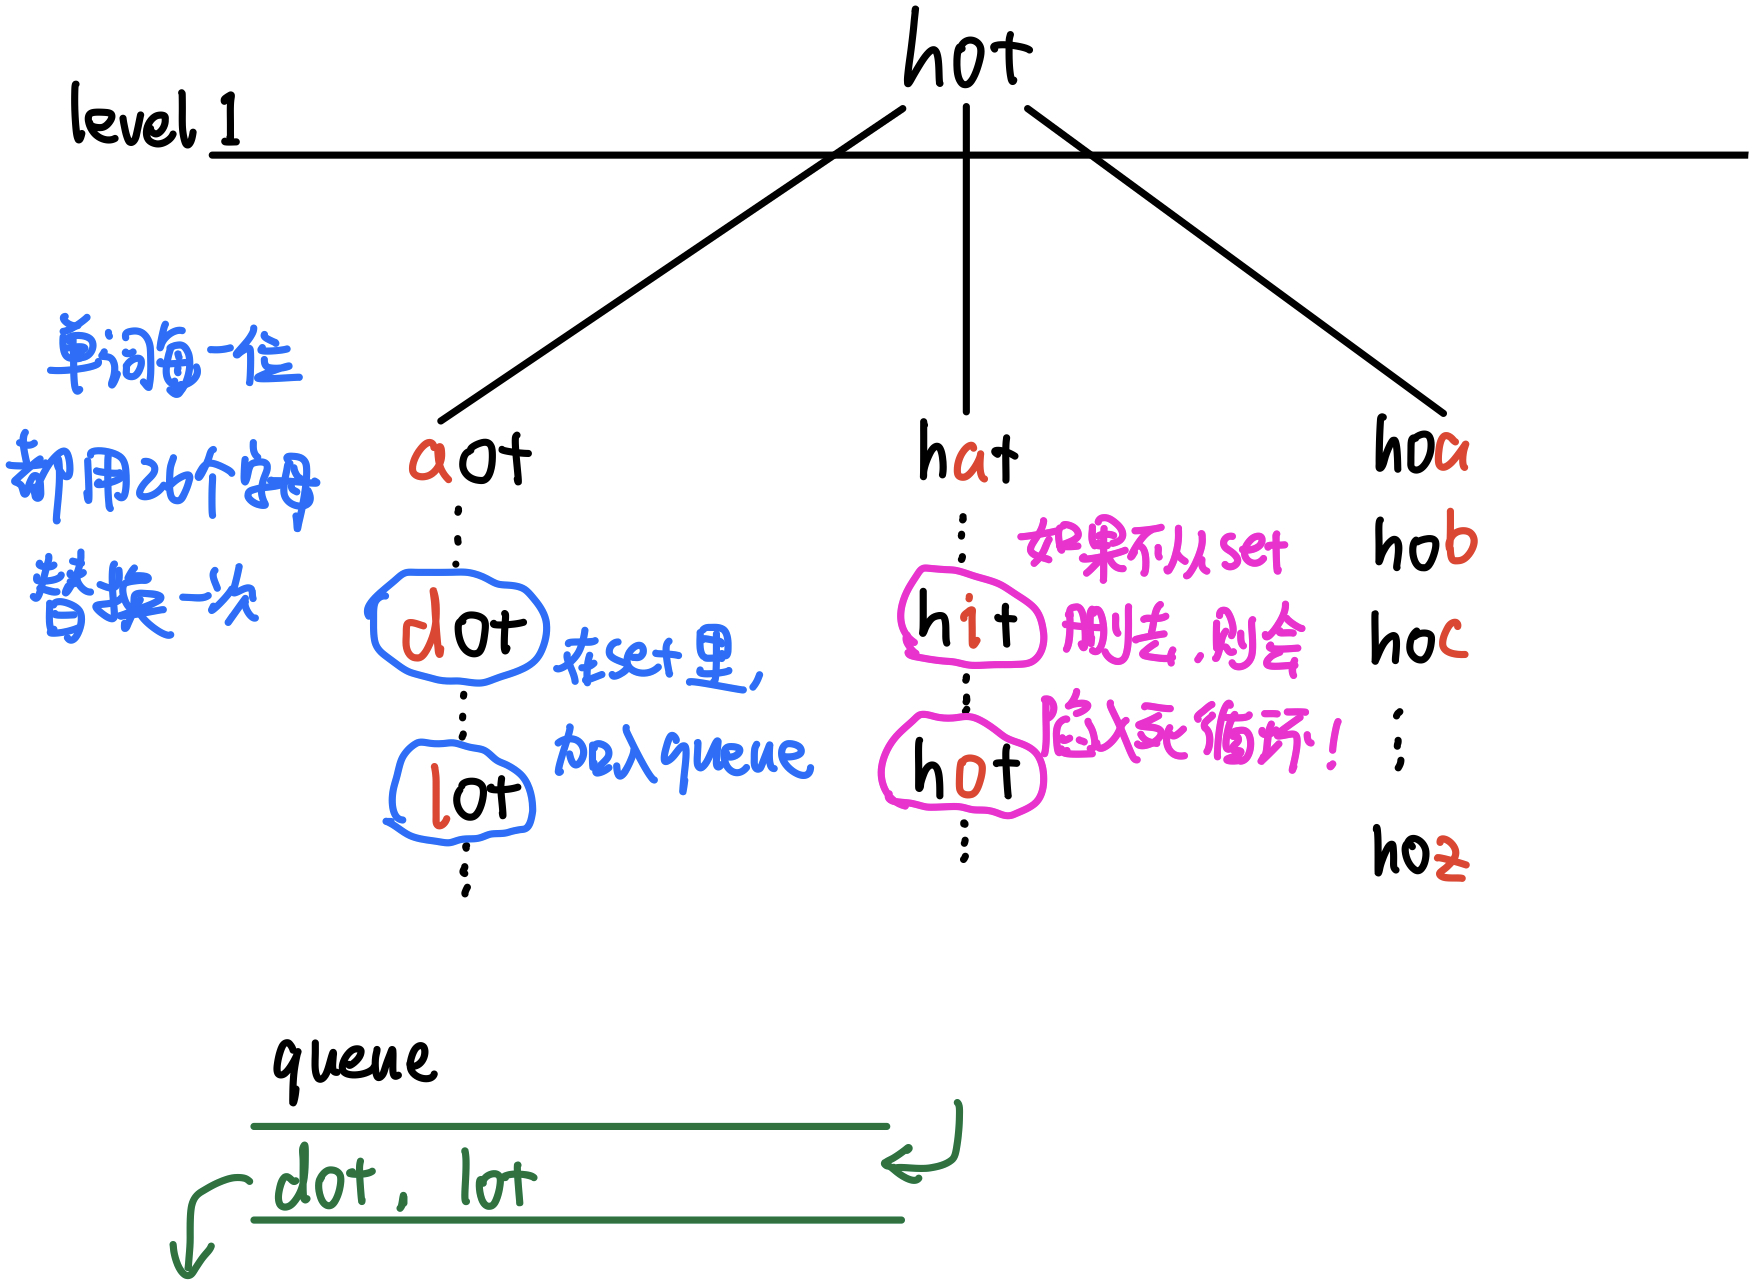 hot
level 1
单词每一位
都用26个字母
替换一次
aot
dot
lot
在set里,
加入queue
hat
hit
hot
如果不从set
删去,则会
陷入死循环!
hoa
hob
hoc
hoz
queue
dot, lot